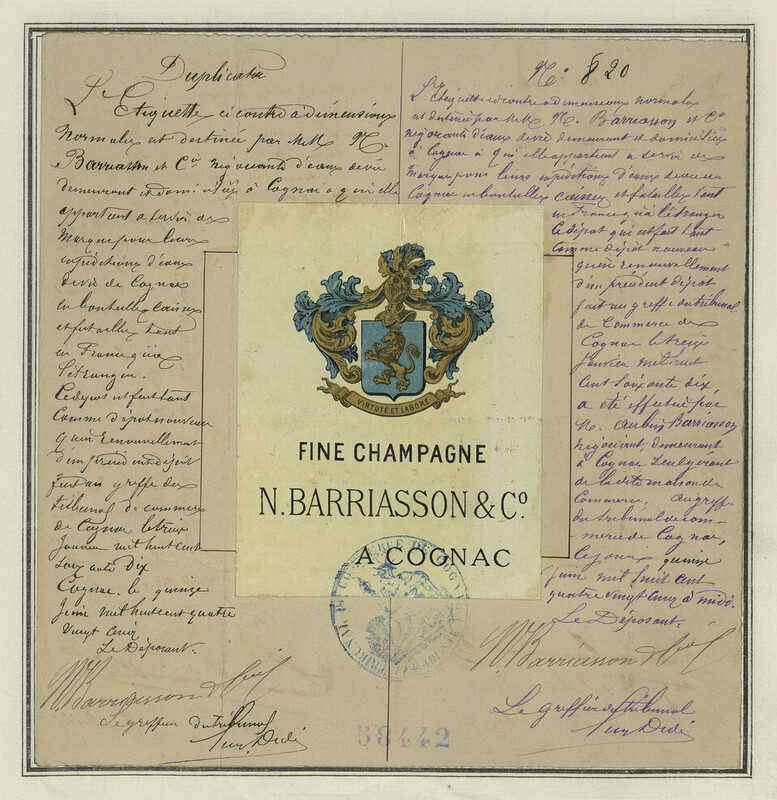 Duplicata
L'Etiquette ci contre a dimensions
normales est destinée par MM N.
Barriasson et Cie négociants d'eaux de vie
demeurant et domiciliés à Cognac a qui elle
appartient a servir de
Marque pour leurs
expéditions d'eaux
de vie de Cognac
en bouteilles caisses
et futailles tant
en France qu'à
l'étranger.
Ce dépot est fait tant
comme dépot nouveau
qu'en renouvellement
d'un précédent dépôt
fait au greffe du
tribunal de commerce
de Cognac le treize
Janvier mil huit cent
soixante dix
Cognac le quinze
Juin mil huit cent quatre
vingt cinq
Le Déposant.
N. Barriasson & Cie
Le greffier du tribunal
No. 820
L'Etiquette ci contre a dimensions normales
est destinée par MM N. Barriasson et Cie
négociants d'eaux de vie demeurant et domiciliés
à Cognac à qui elle appartient a servir de
Marque pour leurs expéditions d'eaux de vie de
Cognac en bouteilles caisses et futailles tant
en France qu'à l'étranger
Ce dépot qui est fait tant
comme dépôt nouveau
qu'en renouvellement
d'un précédent dépôt
fait au greffe du tribunal
de Commerce de
Cognac le treize
Janvier mil huit
cent soixante dix
a été effectué par
M. Aubin Barriasson
négociant, demeurant
à Cognac seul gérant
de la dite maison de
Commerce, au greffe
du tribunal de com-
merce de Cognac,
Ce jour quinze
Juin mil huit cent
quatre vingt cinq à midi.
Le Déposant.
N. Barriasson & Cie
Le greffier du tribunal
VIRTUTE ET LABORE
FINE CHAMPAGNE
N. BARRIASSON & Co.
A COGNAC
TRIBUNAL DE COMMERCE DE COGNAC
58442